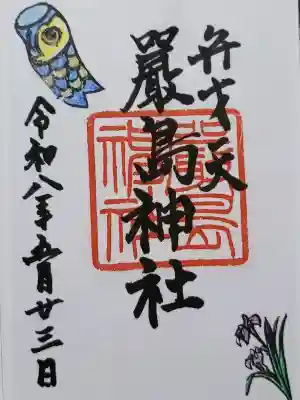 弁才天
嚴島神社
令和八年五月廿三日